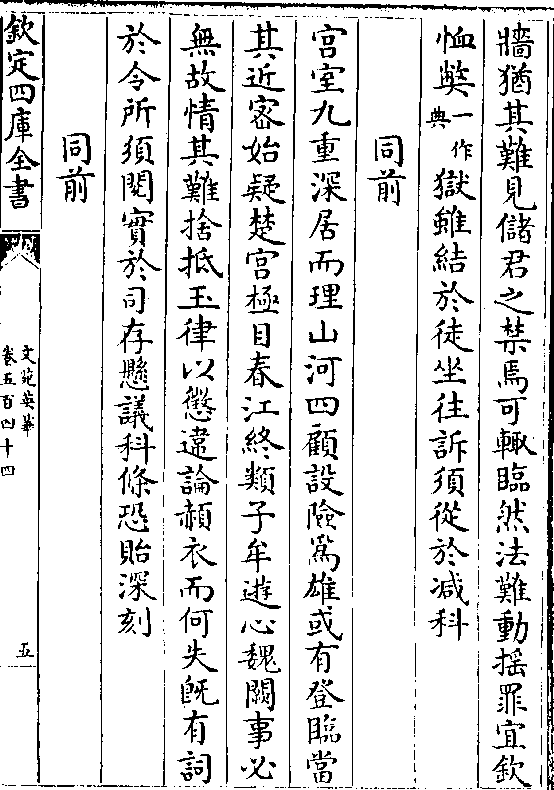 牆猶其難見儲君之禁焉可輙臨然法難動揺罪宜欽
恤獘一作典獄雖結於徒坐往訴須從於减科
同前
宫室九重深居而理山河四顧設險為雄或有登臨當
其近宻始疑楚宫極目春江終類子牟遊心魏闕事必
無故情其難捨抵玉律以懲違論赬衣而何失旣有詞
於令所須閱實於司存懸議科條恐貽深刻
同前
欽定四庫全書
文苑英華
卷五百四十四
五